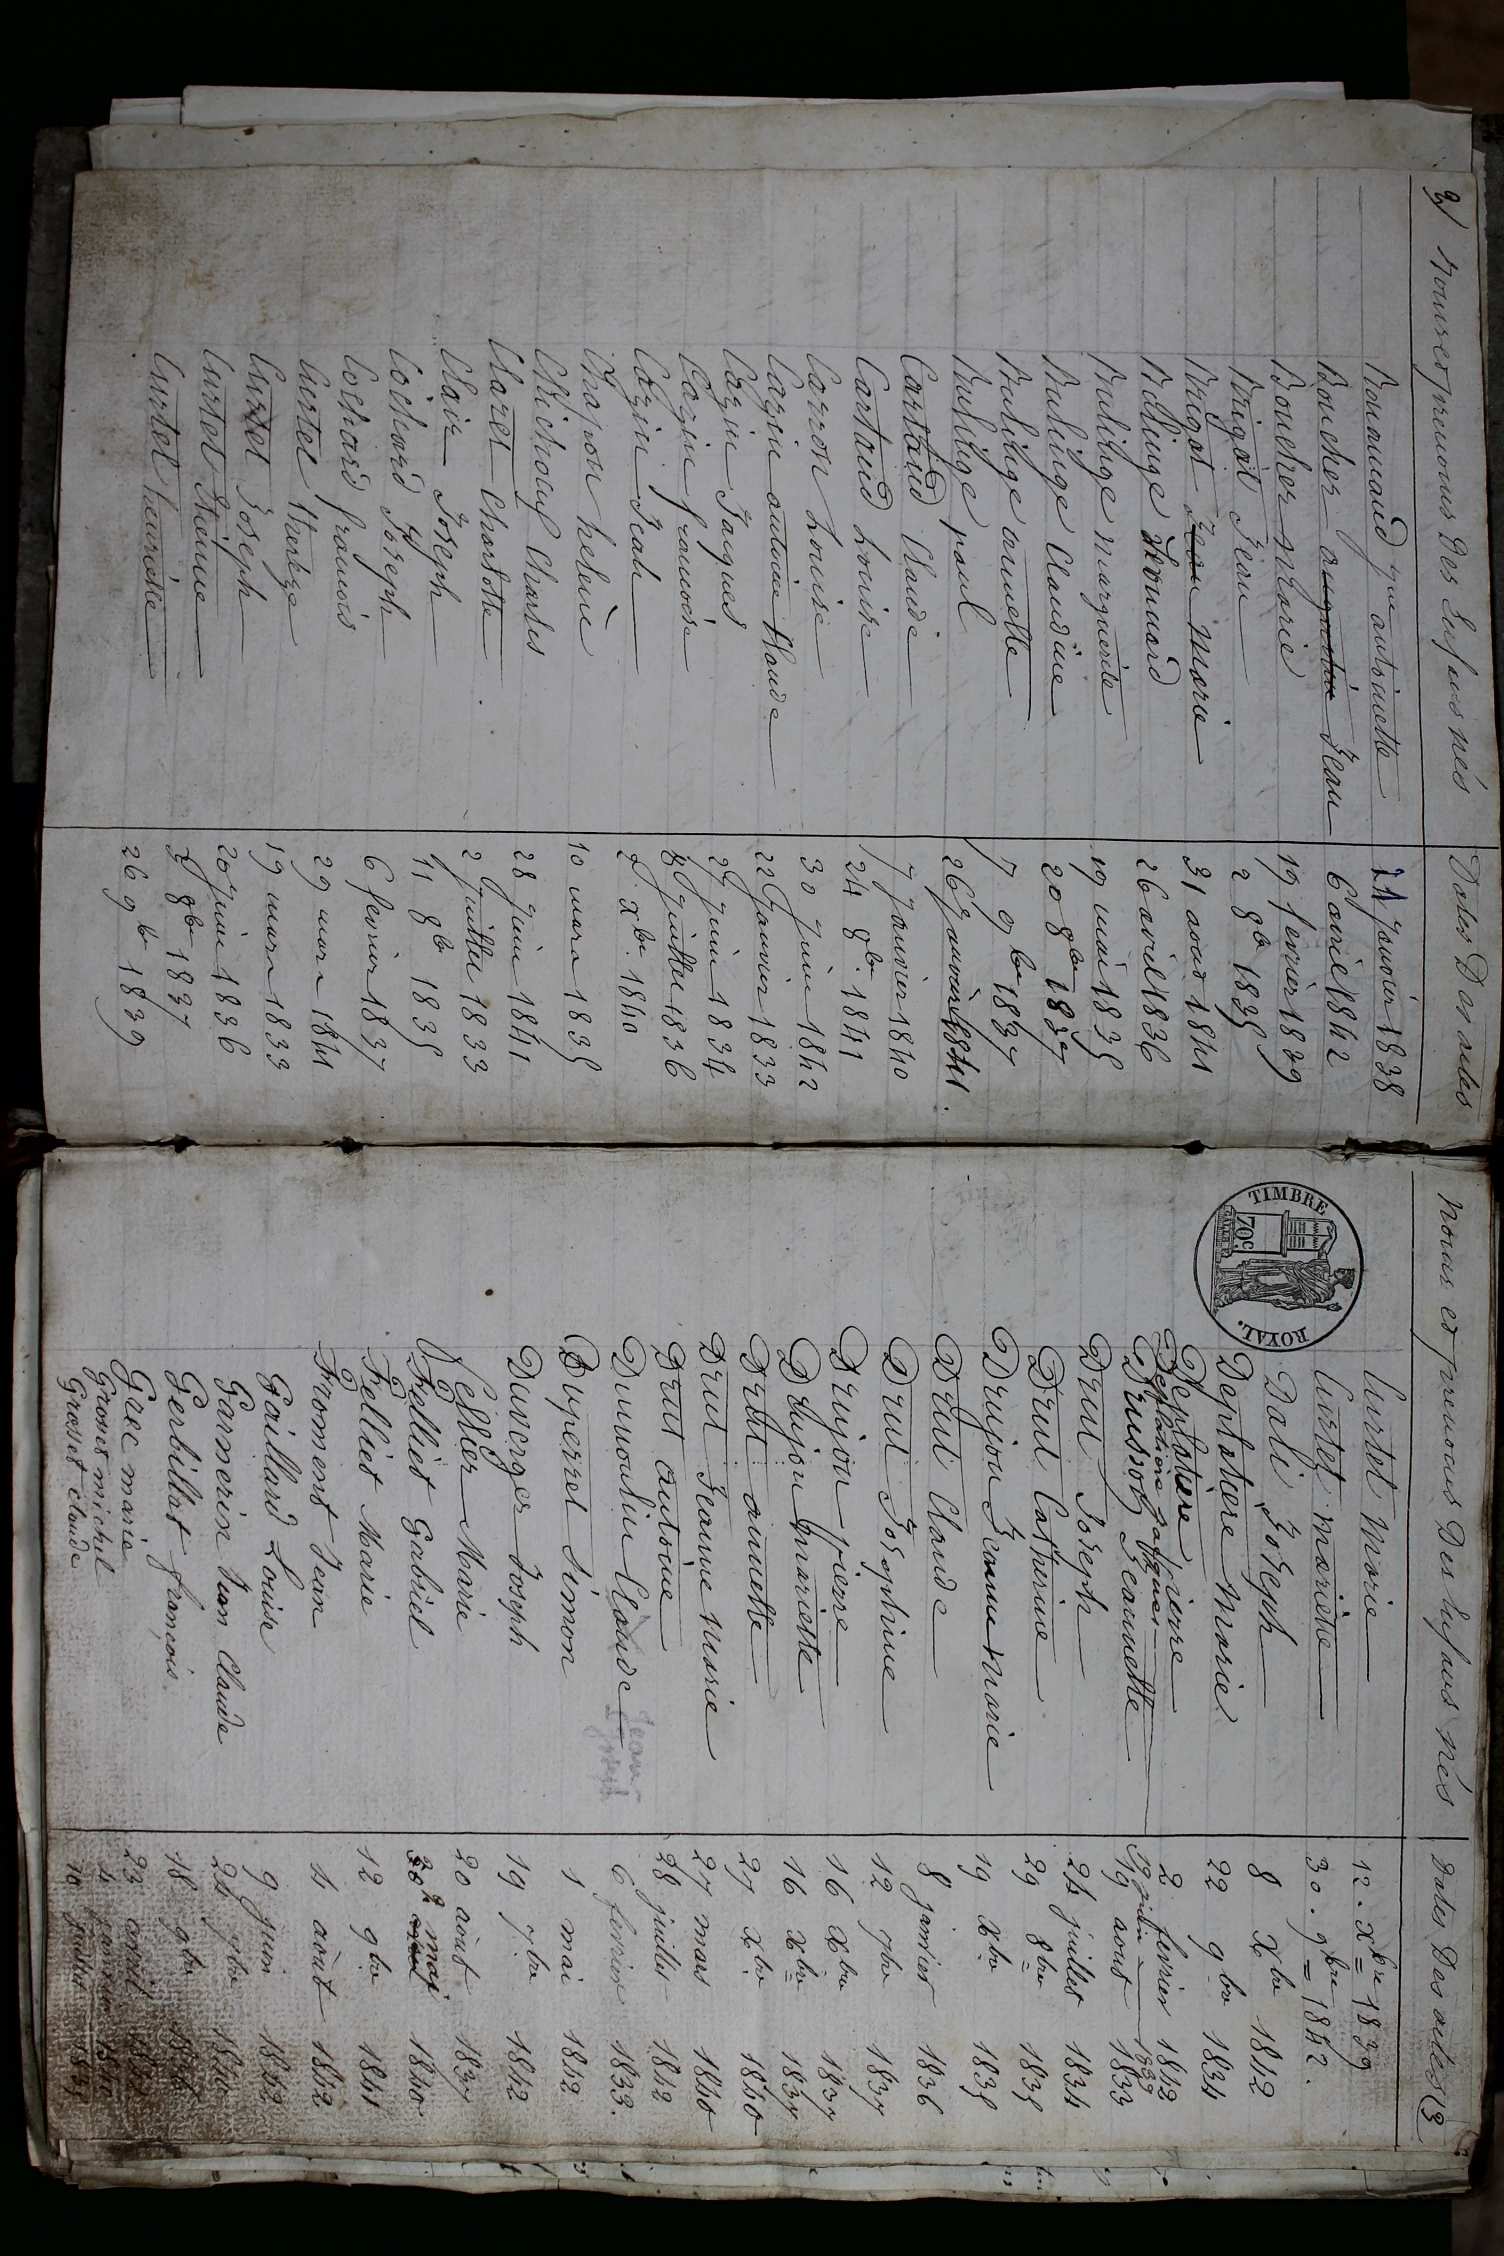 2) noms et prenoms des Enfans nés Dates Des actes
Bonamaud antoinette 21 Janvier 1838
Boucher Jean 6 avril 1842
Boucher Marie 19 fevrier 1839
Brigat Jean 2 8bre 1835
Brigat Marie 31 aout 1841
Bulinge Leonnard 26 avril 1836
Bulinge Marguerite 19 mai 1835
Bulinge Claudine 20 8bre 1837
Bulinge annette 7 9bre 1837
Bulinge paul 26 janvier 1841.
Cartaud Claude 7 Janvier 1840
Cartaud Louise 24 8bre. 1841
Carron Louise 30 Juin 1842
Cazin antoine Claude 22 Janvier 1833
Cazin Jacques 29 juin 1834
Cazin francoise 8 juillet 1836
Cazin Jean xbre. 1840
Chapon helene 10 mars 1835
Chicholuf Charles 28 Juin 1841
Clazel Charlotte 2 Juillet 1833
Clair Joseph 11 8bre 1835
Cochard Joseph 6 fevrier 1837
Cochard francois 29 mars 1841
Curtel 19 mars 1833
Curtel Joseph 20 juin 1836
Curtel Etienne 8bre 1837
Curtel henriette 26 9bre 1839
noms et prenoms Des Enfans nés Dates Des actes (3
TIMBRE ROYAL. 70c.
Curtel Marie 12. xbre 1839
Curtel mariette 30. 9bre 1842.
Dali Joseph 8 xbre 1842
Deplatiere Marie 22 9bre 1834
Deplatiere pierre 2 fevrier 1842
Deplatiere jacques 29 juin 1839
Drussot Jeannette 19 aout 1833
Drut Joseph 24 juillet 1834
Drut Catherine 29 8bre 1835
Drujon Jeanne Marie 19 xbre 1835
Drut Claude 8 janvier 1836
Drut Josephine 12 7bre 1837
Drujon pierre 16 xbre 1837
Drujon mariette 16 xbre 1837
Drut annette 27 xbre 1840
Drut Jeanne Marie 27 mars 1840
Drut antoine 28 juillet 1842
Dumoulin Claude Jean Joseph 6 fevrier 1833.
Duperrel Simon 1 mai 1842
Duverger Joseph 19 7bre 1842
Marie 20 août 1837
Felliet Gabriel 30 mai 1840
Felliet Marie 12 9bre 1841
Froment Jean 4 août 1842
Gaillard Louise 9 juin 1842
Garmerix Jean Claude 24 7bre 1840
Gerbillat françois. 18 9bre 1836
Grec marie 23 avril
Grosset michel 4 1840
Grosset claude 10 juillet 1835